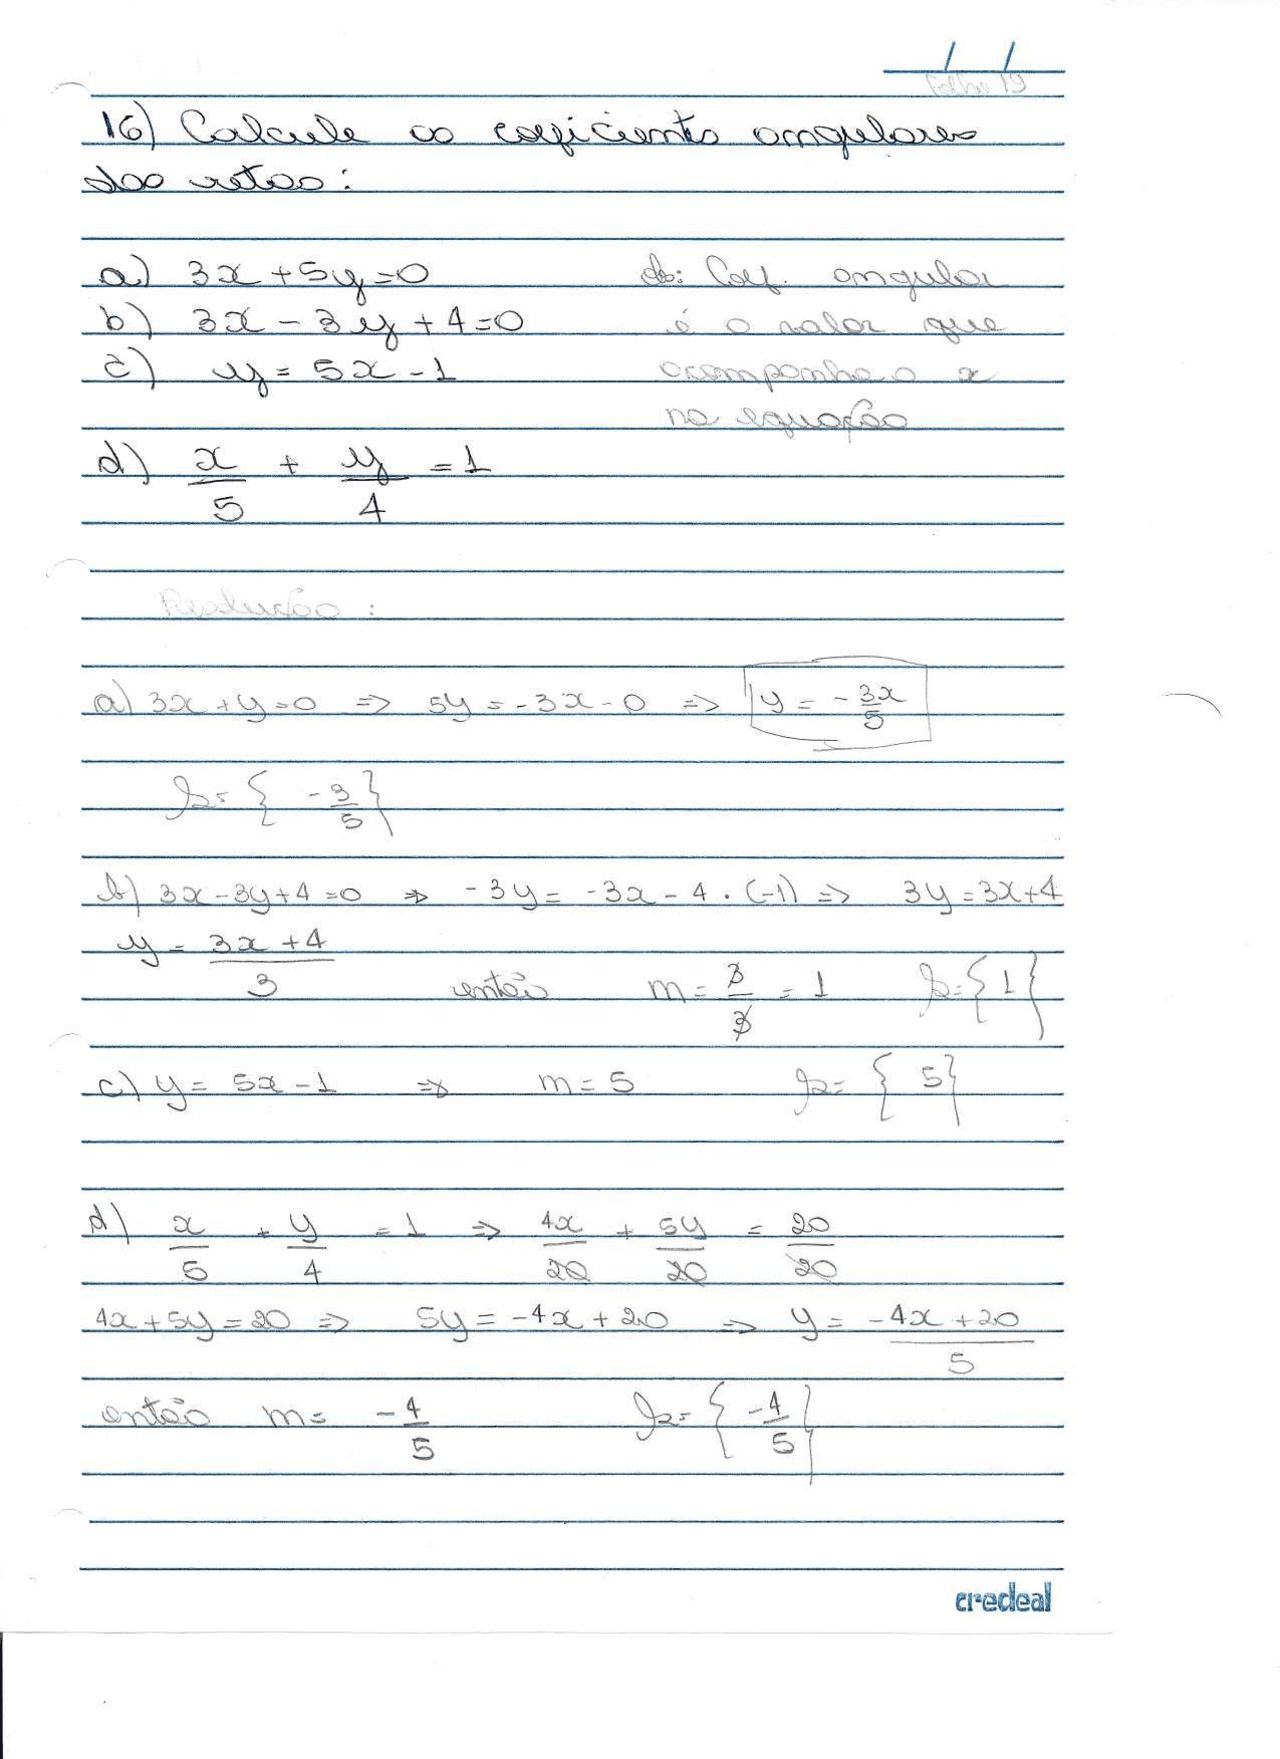 / /
Folha 19
16) Calcule os coeficientes angulares
das retas:
a) 3x + 5y = 0
obs: Coef. angular
b) 3x - 3y + 4 = 0
é o valor que
c) y = 5x - 1
acompanha o x
na equação
d) x/5 + y/4 = 1
Resolução:
a) 3x + y = 0 => 5y = -3x - 0 => y = -3x/5
S = { -3/5 }
b) 3x - 3y + 4 = 0 => -3y = -3x - 4 . (-1) => 3y = 3x + 4
y = 3x + 4/3
então m = 3/3 = 1 S = { 1 }
c) y = 5x - 1 => m = 5 S = { 5 }
d) x/5 + y/4 = 1 => 4x/20 + 5y/20 = 20/20
4x + 5y = 20 => 5y = -4x + 20 => y = -4x + 20/5
então m = -4/5 S = { -4/5 }
credeal